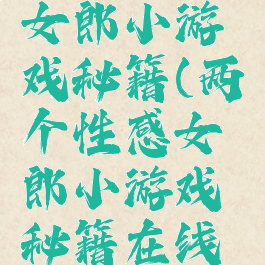 女郎小游
戏秘籍(两
个性感女
郎小游戏
秘籍在线